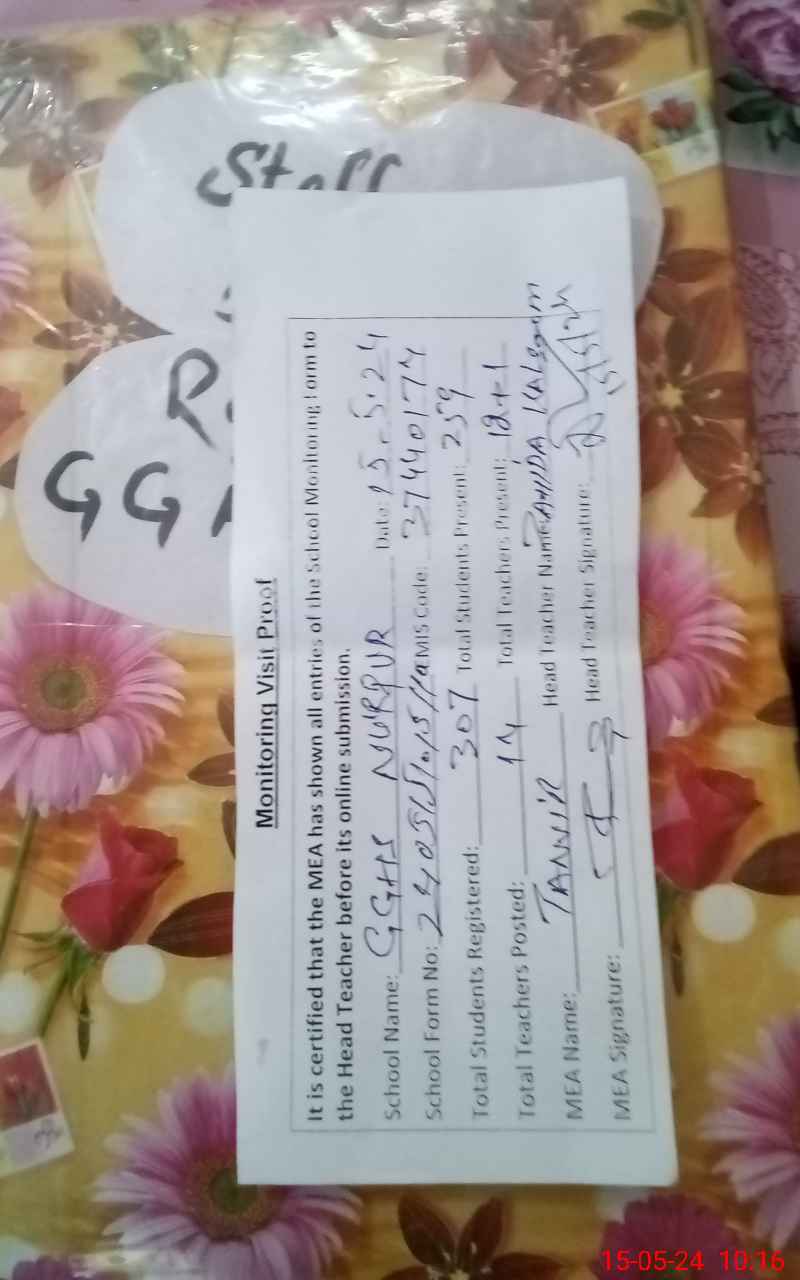 Staff
GG
Monitoring Visit Proof
It is certified that the MEA has shown all entries of the School Monitoring Form to
the Head Teacher before its online submission.
School Name: GGHS NURPUR Date: 15.5.24
School Form No: EMIS Code: 37440174
Total Students Registered: 307 Total Students Present: 259
Total Teachers Posted: 14 Total Teachers Present: 12+1
MEA Name: TANVIR Head Teacher Name:
MEA Signature: Head Teacher Signature:
15-05-24 10:16